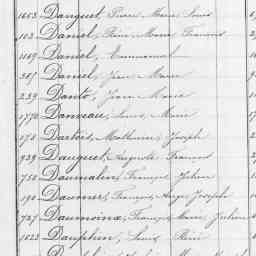 1603 Danguet, Pierre Marie Louis
103 Daniel, René Marie Francois
1169 Daniel, Emmanuel
307 Daniel, Jean Marie
239 Danto, Jean Marie
1770 Danveau, Louis, Marie
178 Darbois, Mathurin, Joseph
939 Dauguet, Auguste Francois
750 Daumalin, François, Julien
190 Daumer, François, Ange, Joseph
727 Daumoine, François Marie Julien
1023 Dauphin, Louis René